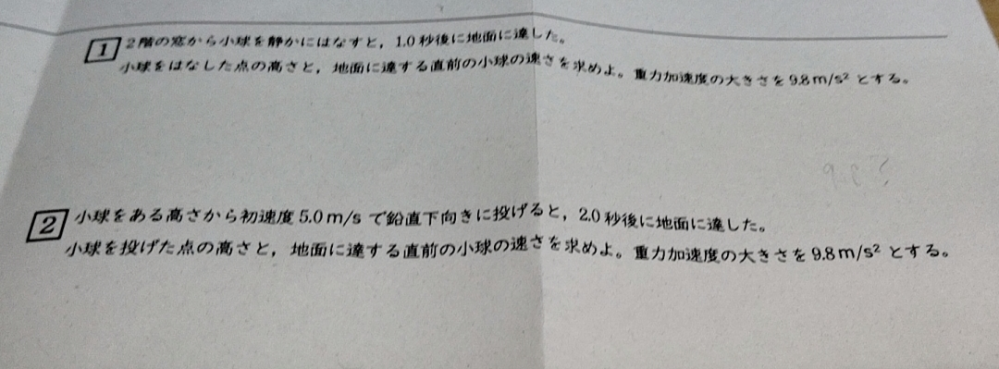 1 2階の窓から小球を静かにはなすと，1.0秒後に地面に達した。
小球をはなした点の高さと，地面に達する直前の小球の速さを求めよ。重力加速度の大きさを9.8m/s²とする。
2 小球をある高さから初速度5.0m/sで鉛直下向きに投げると，2.0秒後に地面に達した。
小球を投げた点の高さと，地面に達する直前の小球の速さを求めよ。重力加速度の大きさを9.8m/s²とする。